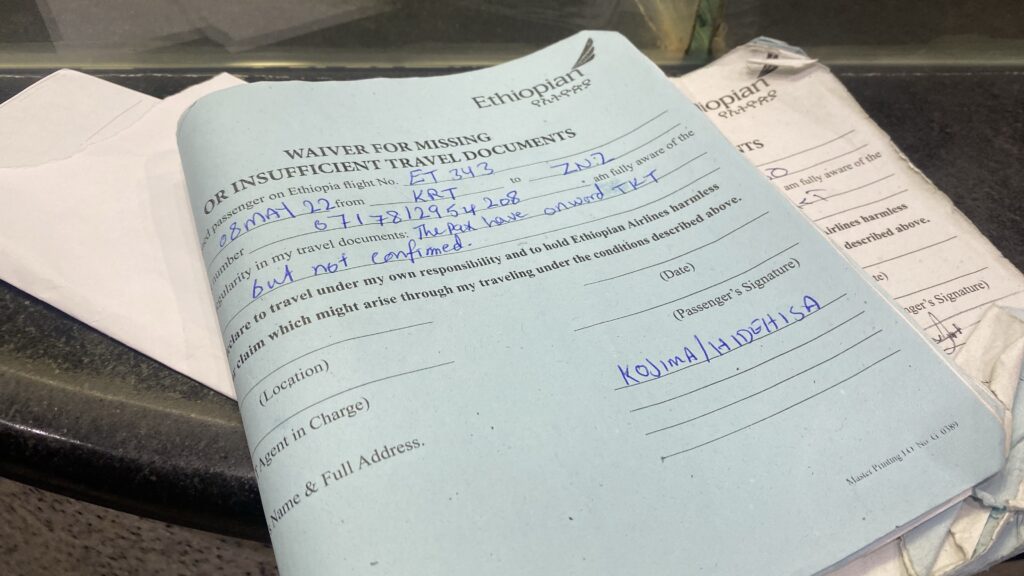 Ethiopian
የኢትዮጵያ
WAIVER FOR MISSING
OR INSUFFICIENT TRAVEL DOCUMENTS
ed passenger on Ethiopia flight No. ET 343 to ZNZ
08MAY22 from KRT
number 0717812954208 am fully aware of the
gularity in my travel documents: The pax have onword TKT
but not confirmed.
clare to travel under my own responsibility and to hold Ethiopian Airlines harmless
claim which might arise through my traveling under the conditions described above.
(Date)
(Location)
(Passenger's Signature)
Agent in Charge)
KOJIMA/HIDEHISA
Name & Full Address.
Master Printing I.O No. G. 0389
opian
የኢትዮጵያ
TS
am fully aware of the
Airlines harmless
described above.
te)
nger's Signature)